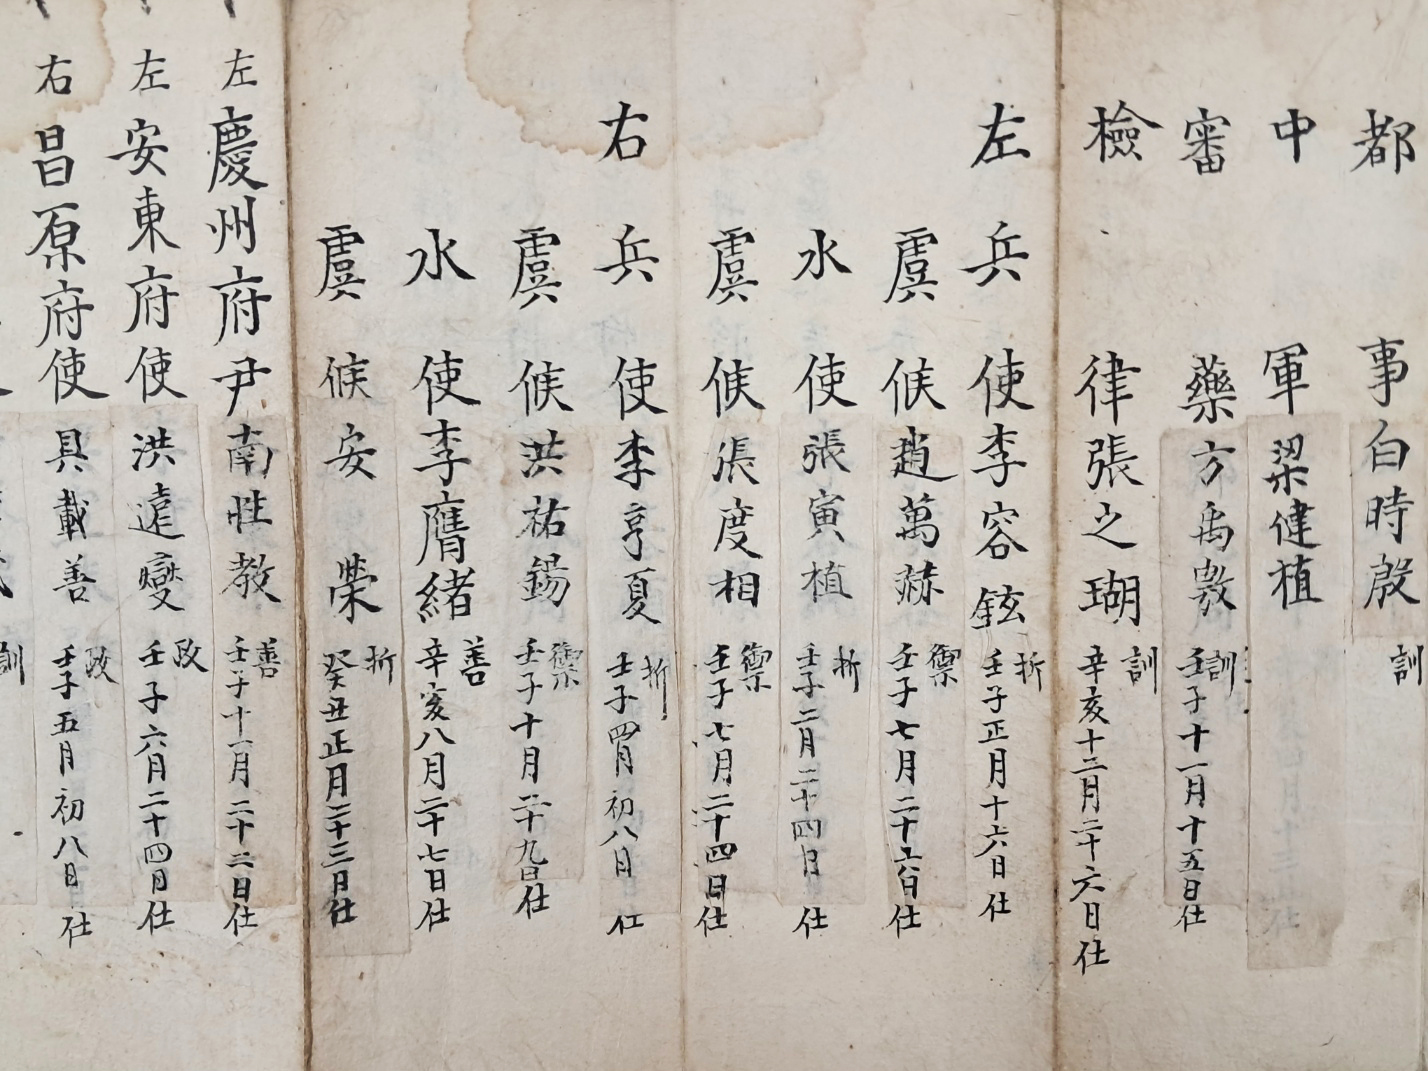 都事白時殷訓
中軍梁健植
審藥方禹敦訓壬子十一月十五日仕
檢律張之瑚訓辛亥十二月二十六日仕
左兵使李容鉉折壬子正月十六日仕
虞候趙萬赫禦壬子七月二十六日仕
水使張寅植折壬子二月二十四日仕
虞候張度相禦壬子七月二十四日仕
右兵使李亨夏折壬子四月初八日仕
虞候洪祐錫禦壬子十月二十九日仕
水使李膺緒善辛亥八月二十七日仕
虞候安榮折癸丑正月二十三日仕
左慶州府尹南性教善壬子十一月二十二日仕
左安東府使洪遠燮政壬子六月二十四日仕
右昌原府使具載善政壬子五月初八日仕
訓